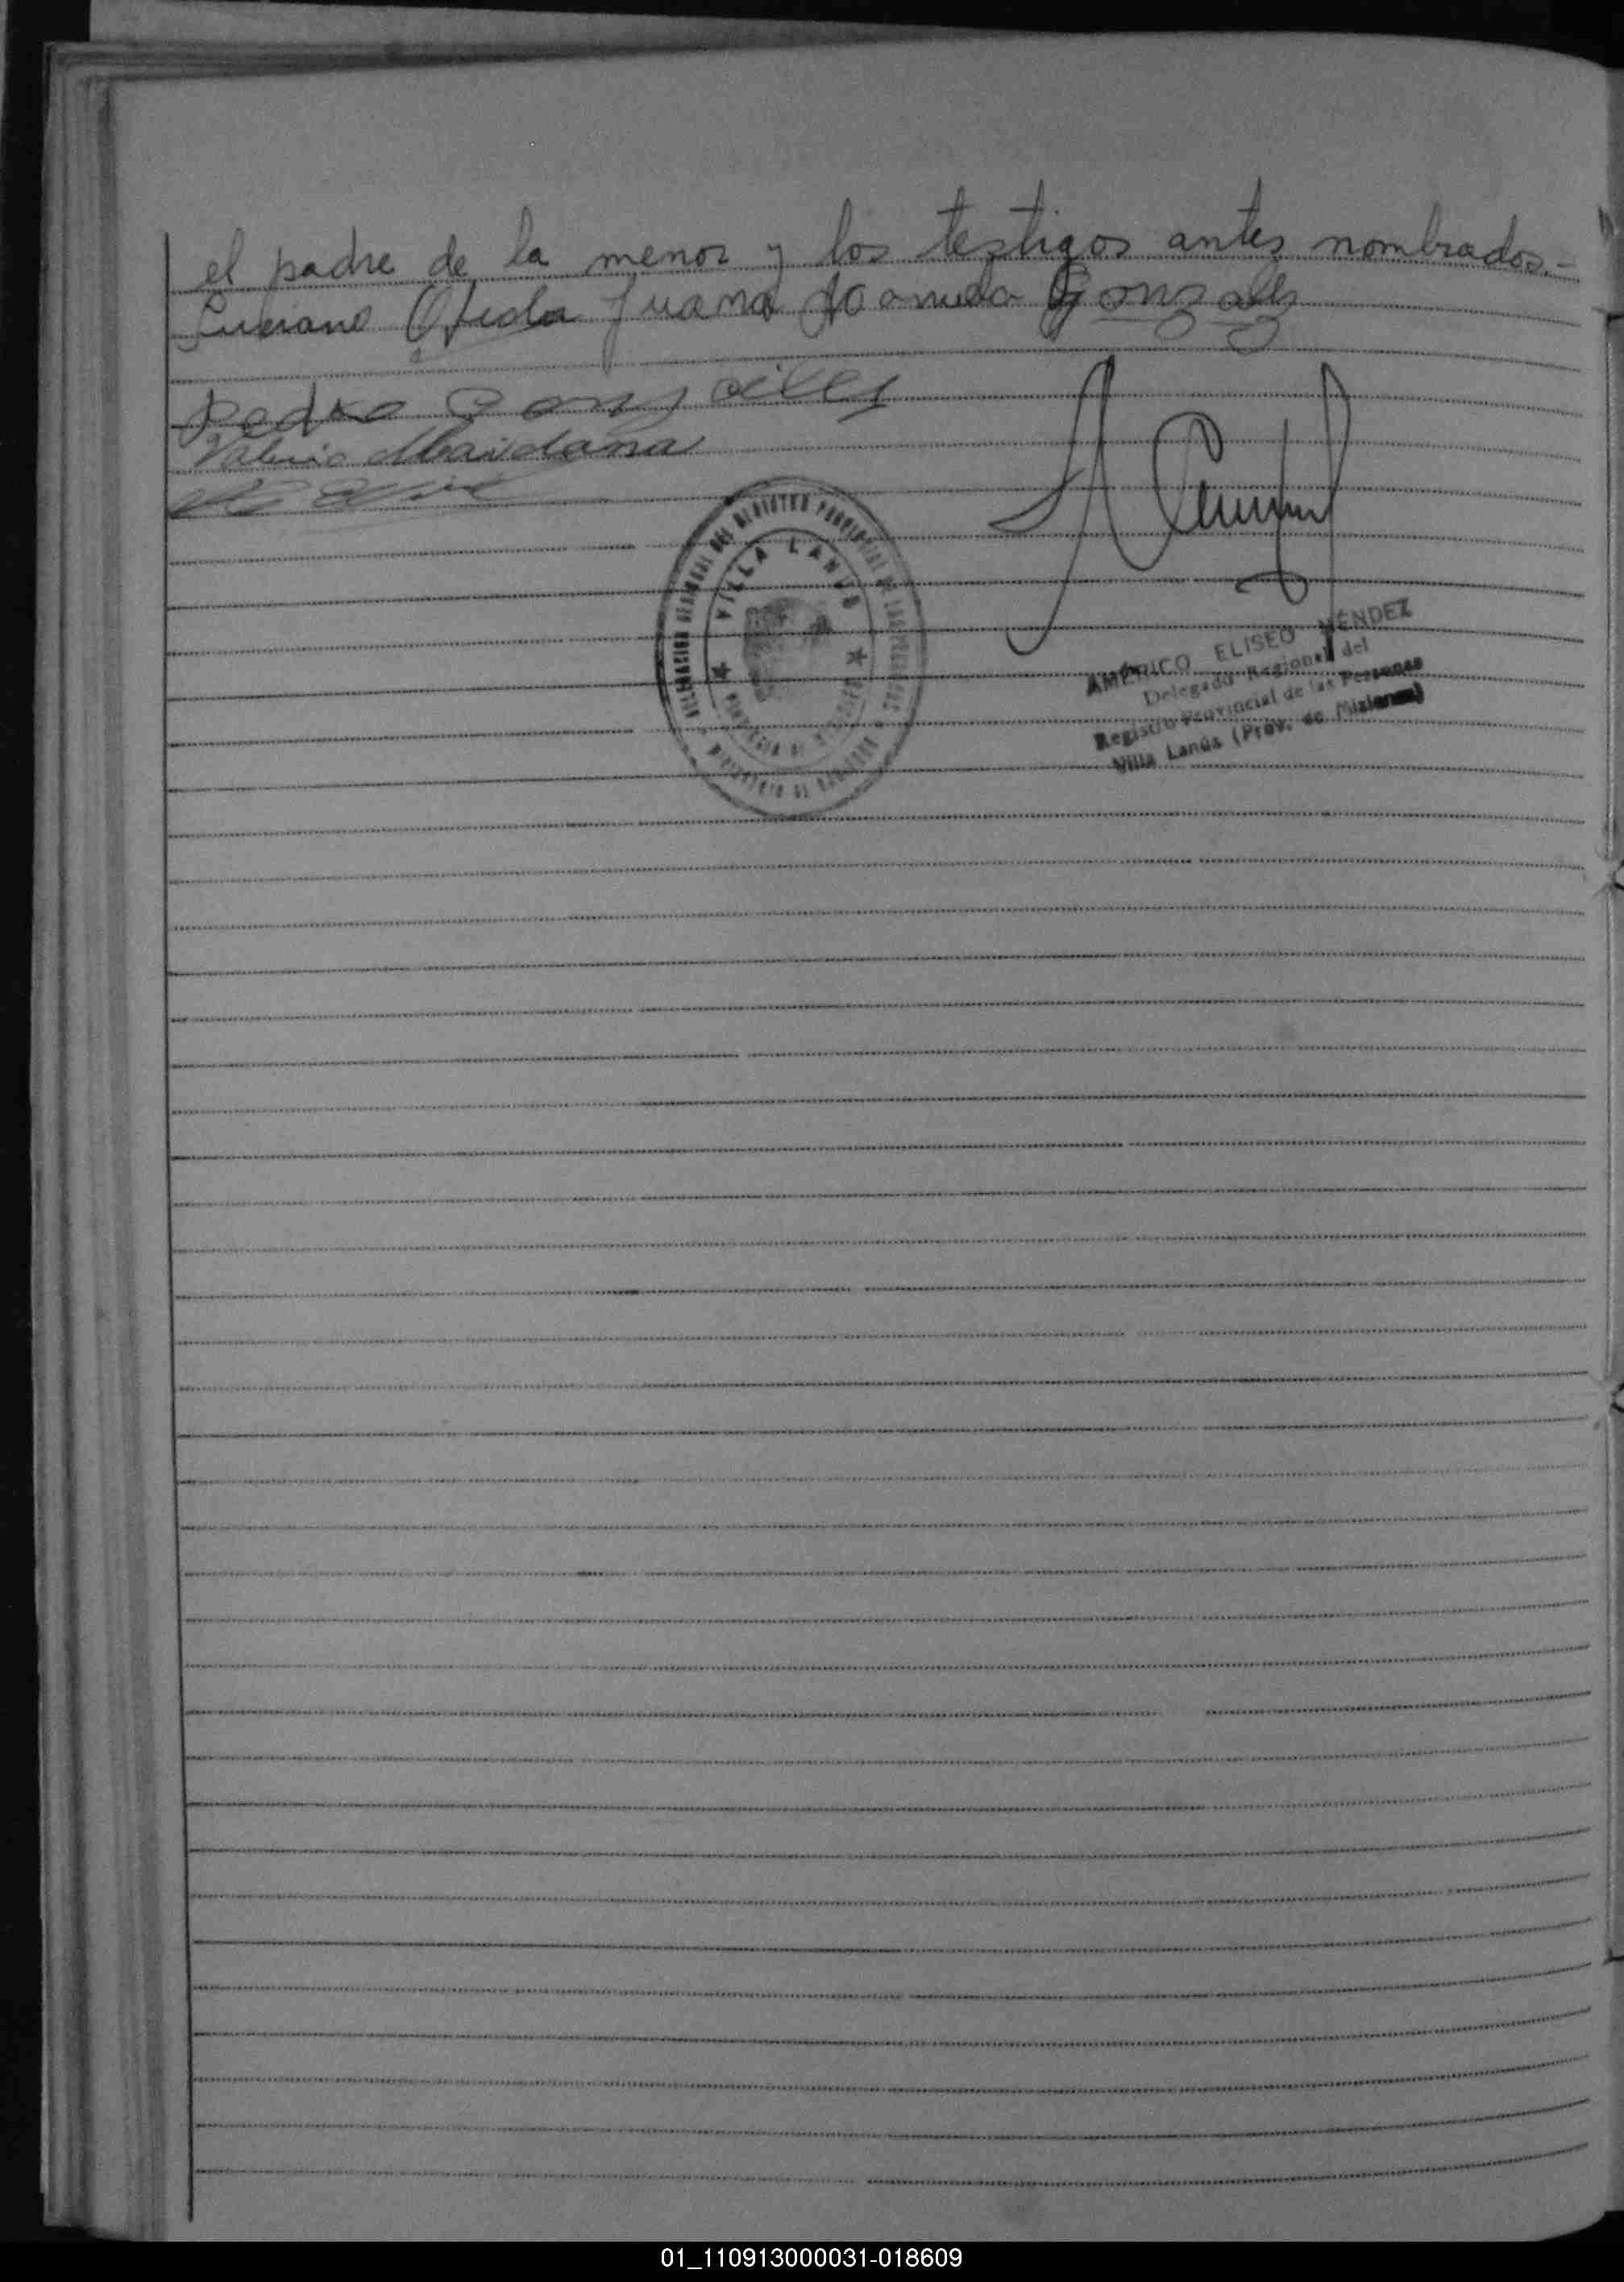 el padre de la menor y los testigos antes nombrados.-
Luciano Ojeda Juana Gonzalez
Pedro Gonzalles
Valerio Maidana
VILLA LANUS
AMÉRICO ELISEO MÉNDEZ
Delegado Regional del
Registro Provincial de las Personas
Villa Lanús (Prov. de Misiones)
01_110913000031-018609